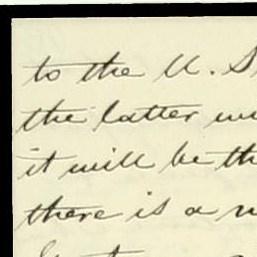 to the U. S
the latter
it will be th
there is a